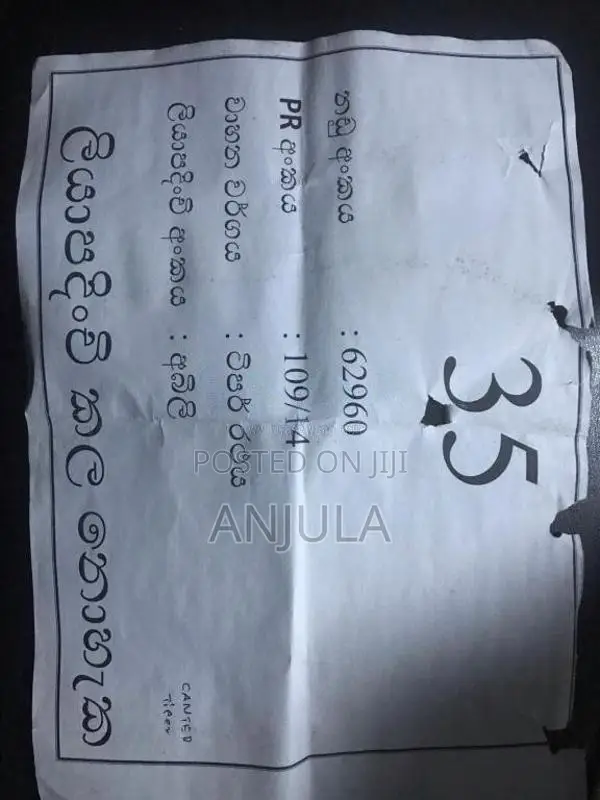 35
නඩු අංකය : 62960
PR අංකය : 109/14
වාහන වර්ගය : ටිපර් රථය
ලියාපදිංචි අංකය : අබලි
ලියාපදිංචි කල නොහැක
CANTED
Tipper
POSTED ON JIJI
ANJULA